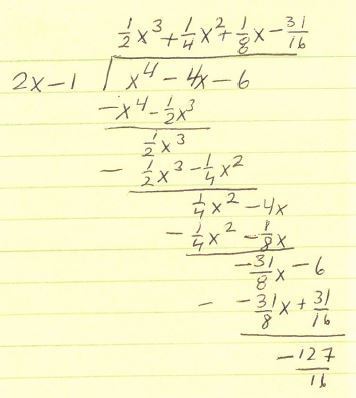 ½x³ + ¼x² + ⅛x − 31/16
2x − 1 ) x⁴ − 4x − 6
− x⁴ − ½x³
½x³
− ½x³ − ¼x²
¼x² − 4x
− ¼x² − ⅛x
−31/8x − 6
− −31/8x + 31/16
−127/16